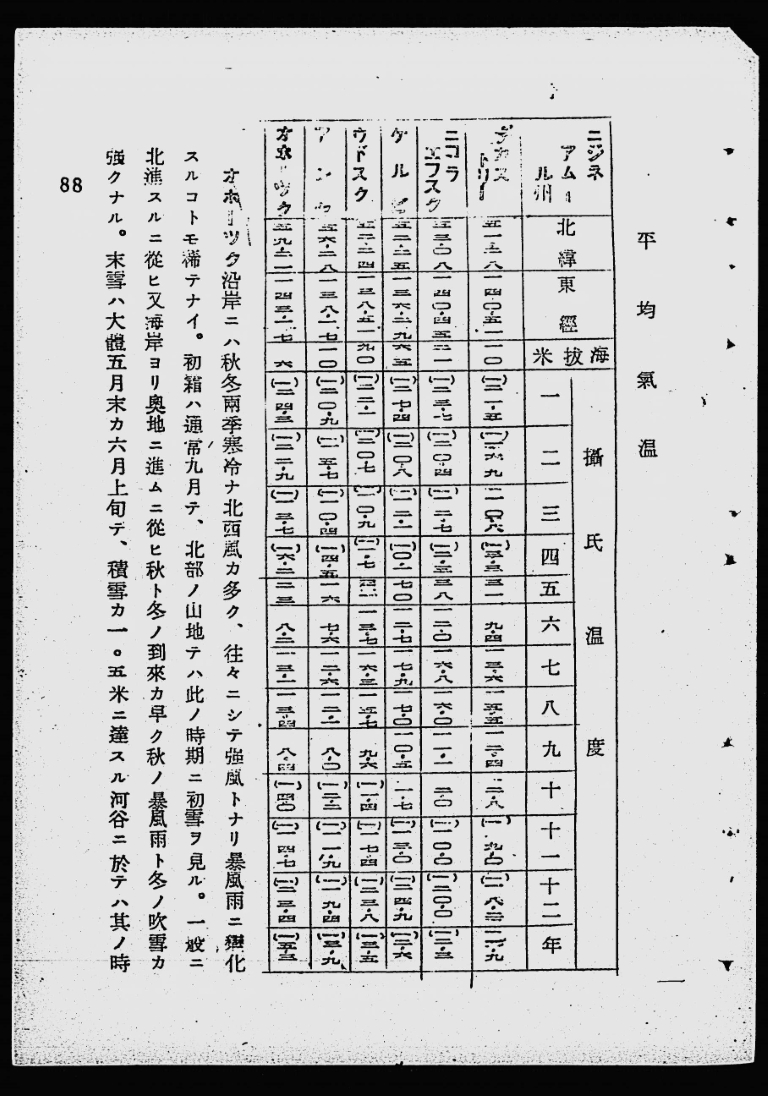 平均氣温
攝氏温度
ニジネアムール州 北緯 東經 海拔米 一 二 三 四 五 六 七 八 九 十 十一 十二 年
デカストリー 一四〇・五一 一〇 (一)二一・五 (一)一六・九 (一)一〇・八 三・一 九・四 一三・六 一五・五 一二・四 二・八 (一)九・〇
ニコラエフスク 五三・〇八 一四〇・四五 二一 (一)二三・七 (一)二〇・四 (一)一二・七 (一)三・五 三・八 一二・〇 一六・八 一六・〇 一一・一 二・〇 (一)一〇・〇 (一)二〇・〇 (一)二・三
ケルビ 五二・二五 一三六・二九 六五 (一)二七・四 (一)二〇・八 (一)一二・一 (一)〇・一 七・〇 一二・七 一七・九 一七・〇 一〇・五 一・七 (一)一三・〇 (一)二四・九 (一)二・六
ウドスク 一三八・五一 九〇 (一)二〇・七 (一)一〇・九 (一)一・七 一三・七 一六・三 九・六 (一)一・四 (一)一七・四 (一)二三・八 (一)三・五
アヤン 五六・二八 一三八・一七 一〇 (一)二〇・九 (一)一五・七 (一)一〇・四 (一)四・五 一・六 七・六 一二・六 一二・一 八・〇 (一)一一・九 (一)一九・四 (一)三・九
オホーツク 五九・二一 一四三・一七 六 (一)二四・三 (一)二二・九 (一)一三・七 (一)六・二 二・三 八・二 一三・一 一三・四 八・四 (一)四・〇 (一)一四・七 (一)二三・四 (一)五・三
オホーツク沿岸ニハ秋冬兩季寒冷ナ北西風カ多ク、往々ニシテ强風トナリ暴風雨ニ變化
スルコトモ稀テナイ。初霜ハ通常九月テ、北部ノ山地テハ此ノ時期ニ初雪ヲ見ル。一般ニ
北漁スルニ從ヒ又海岸ヨリ奥地ニ進ムニ從ヒ秋ト冬ノ到來カ早ク秋ノ暴風雨ト冬ノ吹雪カ
强クナル。末雪ハ大體五月末カ六月上旬テ、積雪カ一。五米ニ達スル河谷ニ於テハ其ノ時
88